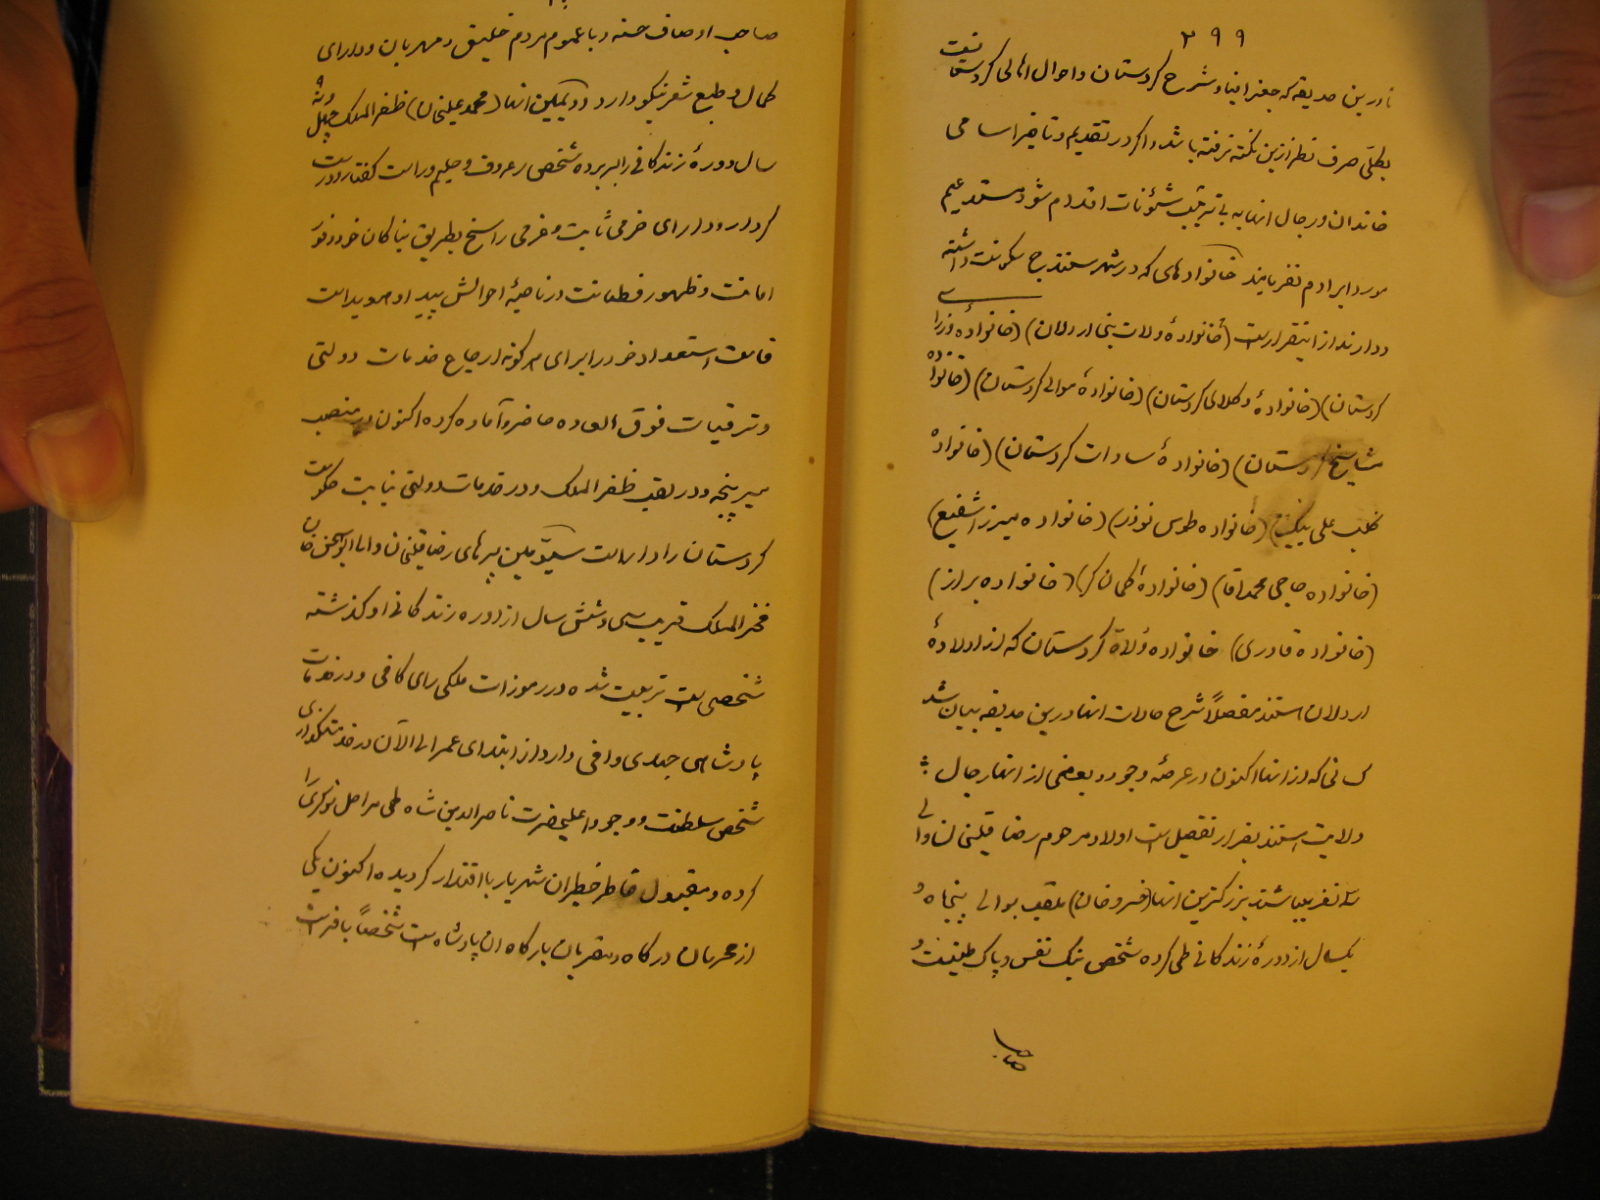 ۲۹۹
درین حدیقه که جغرافیا و شرح کردستان و احوال اهالی کردستانست
بکلی صرف نظر ازین نکته نرفته باشد و اگر در تقدیم و تاخیر اسامی
خاندان و رجال انها به بی ترتیب شئونات اقدام شود مستدعیم
مورد ایرادم نفرمایند خانواده های که در شهر سنندج سکونت داشته
و دارند از اینقرار است (خانوادهٔ ولات بنی اردلان) (خانوادهٔ وزرای
کردستان) (خانوادهٔ وکلای کردستان) (خانوادهٔ موالی کردستان) (خانواده
مشایخ کردستان) (خانوادهٔ سادات کردستان) (خانواده
کلب علی بیک) (خانواده طوس نوذر) (خانواده میرزا شفیع)
(خانواده حاجی محمد اقا) (خانوادهٔ (خانواده بزاز)
(خانواده قادری) خانواده ولاة کردستان که از اولادهٔ
اردلان استند مفصلاً شرح حالات انها درین حدیقه بیان شد
کسانی که از انها اکنون در عرصهٔ وجود و بعضی از انها رجال
ولایت استند بقرار تفصیل است اولاد مرحوم رضا قلیخان والی
سه نفر میباشند بزرکترین انها (خسرو خان) ملقب بوالی پنجاه و
یکسال از دورهٔ زندکانی طی کرده شخص نیک نفس و پاک طینت و
صاحب
صاحب اوصاف حسنه و با عموم مردم خلیق و مهربان و دارای
کمال و طبع شعر نیکو دارد دویمین انها (محمد علیخان) ظفر الملک چهل و نه
سال دورهٔ زندکانی را بسر برده شخص رءوف و حلیم و راست کفتار و درست
کردار و دارای عزمی ثابت و عزمی راسخ بطریق نیاکان خود نور
امانت و ظهور فطانت در ناصیهٔ احوالش پیدا و هویداست
قامت استعداد خود را برای هر کونه ارجاع خدمات دولتی
و ترقیات فوق العاده حاضر و آماده کرده اکنون در منصب
میر پنجه و در لقب ظفر الملک و در خدمات دولتی نیابت حکومت
کردستان را داراست سیّومین پسرهای رضا قلیخان والی ابوالحسن خان
فخر الملک قریب سی و شش سال از دوره زندکانی او کذشته
شخصی است تربیت شده در رموزات ملکی رای کافی و در خدمات
پادشاهی جهدی وافی دارد از ابتدای عمر الی الآن در خدمتکذاری
شخص سلطنت و وجود اعلیحضرت ناصر الدین شاه طی مراحل نوکری را
کرده و مقبول خاطر خطیر ان شهریار با اقتدار کردیده اکنون یکی
از محرمان درکاه و مقربان بارکاه ان پادشاه است شخصاً با فراست